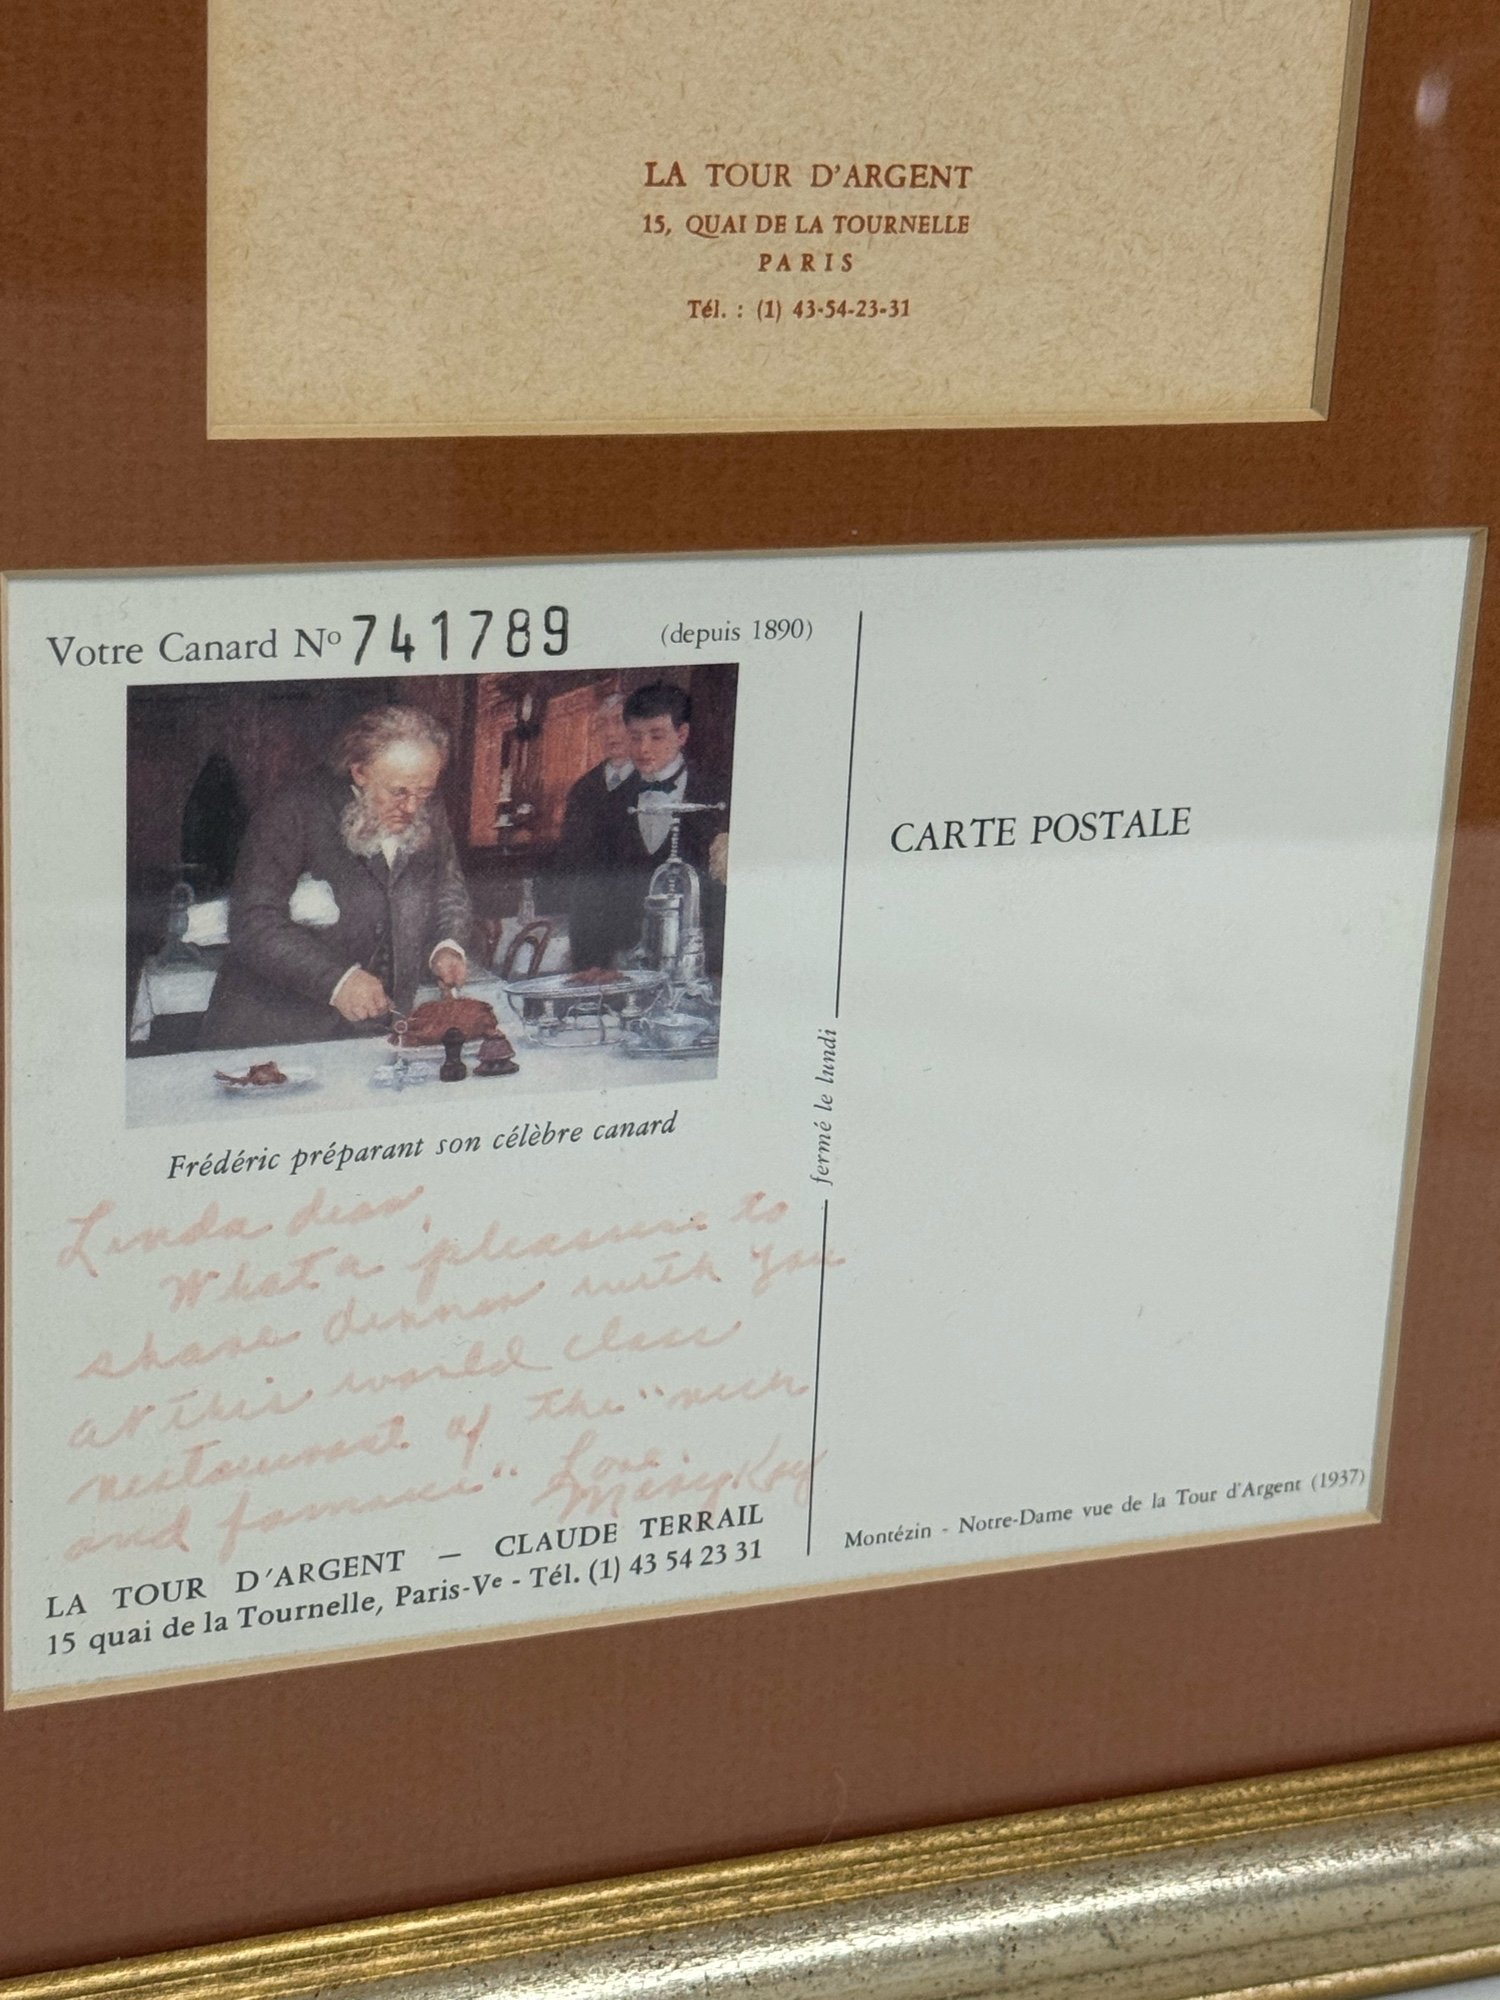 LA TOUR D'ARGENT
15, QUAI DE LA TOURNELLE
PARIS
Tél. : (1) 43-54-23-31
Votre Canard Nº 741789 (depuis 1890)
Frédéric préparant son célèbre canard
Linda dear,
What a pleasure to
share dinner with you
at this world class
restaurant of the "rich
and famous" Love
Mary Kay
LA TOUR D'ARGENT – CLAUDE TERRAIL
15 quai de la Tournelle, Paris-Vᵉ - Tél. (1) 43 54 23 31
fermé le lundi
CARTE POSTALE
Montézin - Notre-Dame vue de la Tour d'Argent (1937)